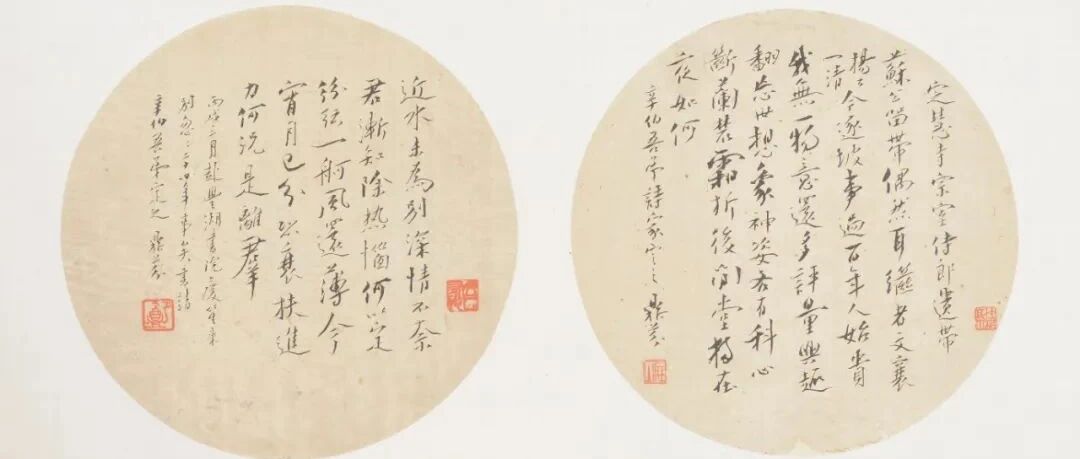 定慧寺宗室侍郎遺帶
蘇公留帶偶然耳繼者文襄
一清今逐坡事過百年人始貴
我無一物意還多評量興趣
翻忘世想象神姿各有科心
斷蘭叢霜折後閒堂在
夜如何
辛伯吾弟詩家 鼎芬
近水未為別深情不奈
君漸知除熱惱何以定
紛一舸風還薄今
宵月已分恐衰扶進
力何況是離群
丙戌三月赴豐湖書院慶笙來
別忽二十四年事矣書請
辛伯吾弟定之 鼎芬